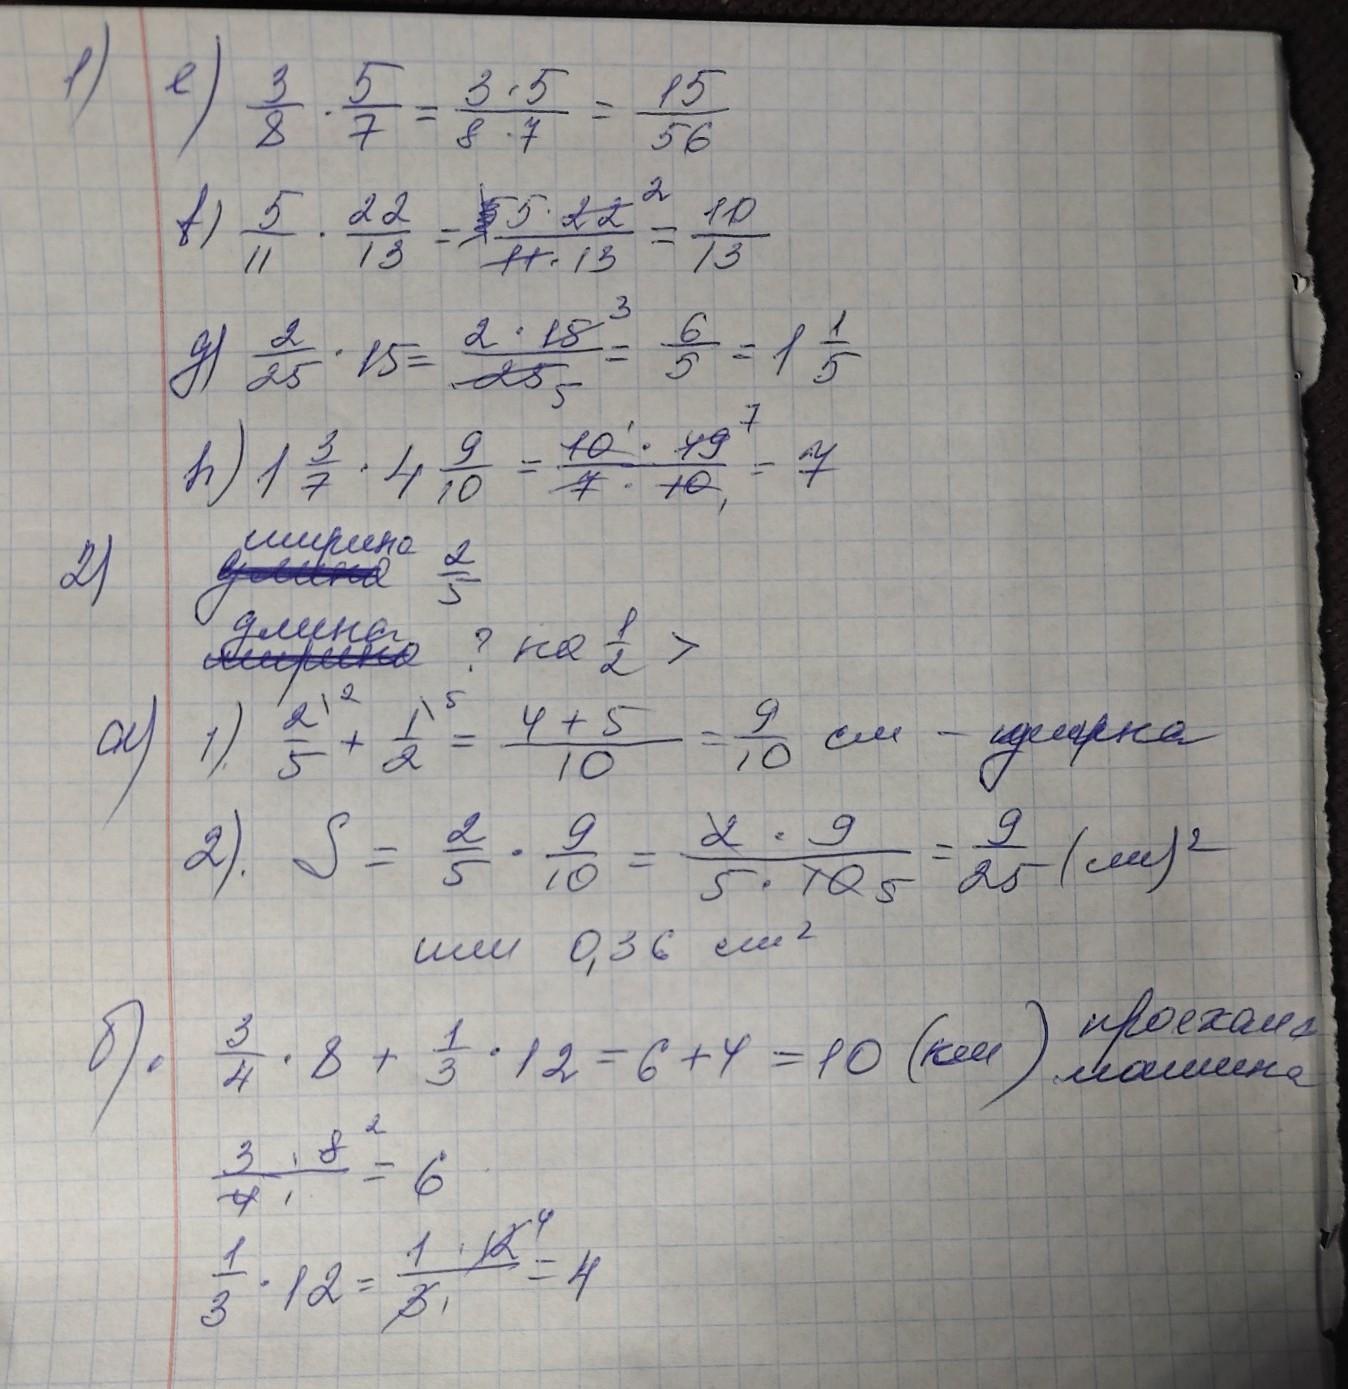 1) e) 3/8 · 5/7 = 3·5/8·7 = 15/56
f) 5/11 · 22/13 = 5·22 2/11·13 = 10/13
g) 2/25 · 15 = 2·15 3/25 5 = 6/5 = 1 1/5
h) 1 3/7 · 4 9/10 = 10 1 · 49 7/7 · 10 1 = 7
2) ширина 2/5
длина ? на 1/2 >
а) 1). 2/5 \2 + 1/2 \5 = 4+5/10 = 9/10 см –
2). S = 2/5 · 9/10 = 2·9/5·10 5 = 9/25 (см)²
или 0,36 см²
б). 3/4 · 8 + 1/3 · 12 = 6+4 = 10 (км) проехала
машина
3 · 8 2/4 1 = 6
1/3 · 12 = 1 · 12 4/3 1 = 4